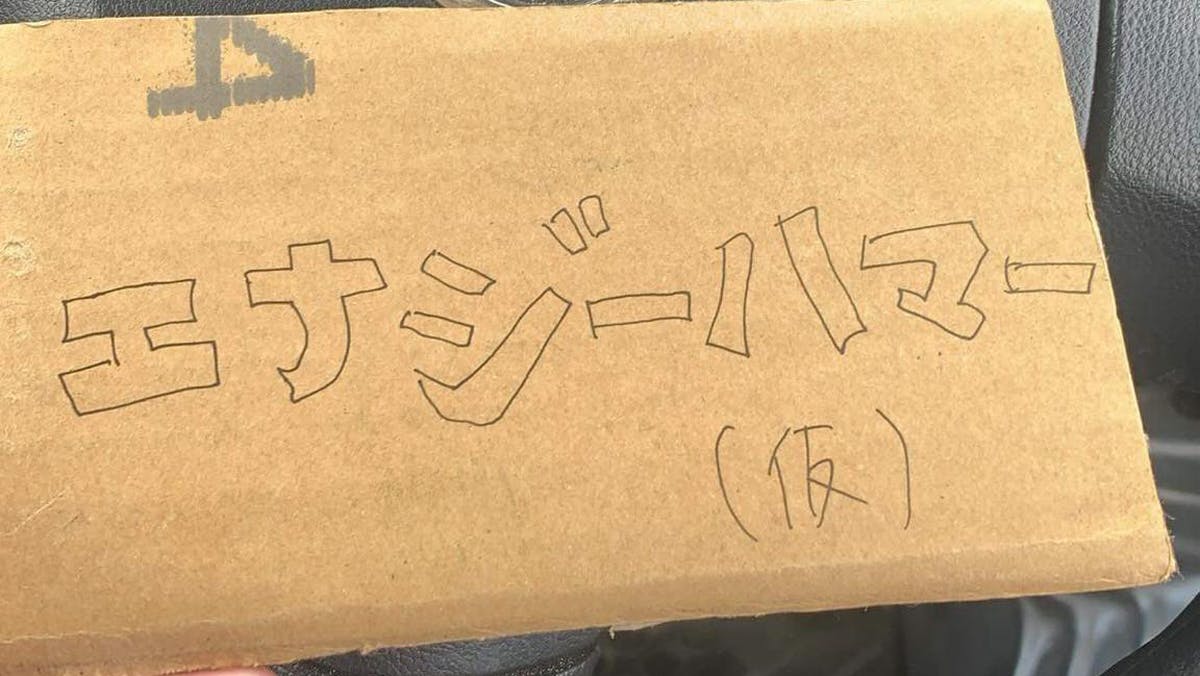 エナジーハマー
(仮)